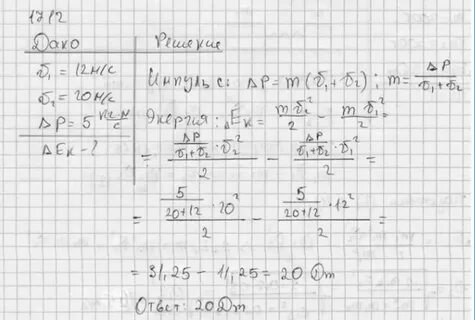 1712
Дано
Решение
υ₁ = 12 м/с
υ₂ = 20 м/с
ΔP = 5 кг·м/с
ΔEк - ?
Импульс: ΔP = m(υ₁+υ₂); m = ΔP/(υ₁+υ₂)
Энергия: ΔEк = mυ₂²/2 - mυ₁²/2 =
= (ΔP/(υ₁+υ₂) · υ₂²)/2 - (ΔP/(υ₁+υ₂) · υ₁²)/2 =
= (5/(20+12) · 20²)/2 - (5/(20+12) · 12²)/2 =
= 31,25 - 11,25 = 20 Дж
Ответ: 20 Дж